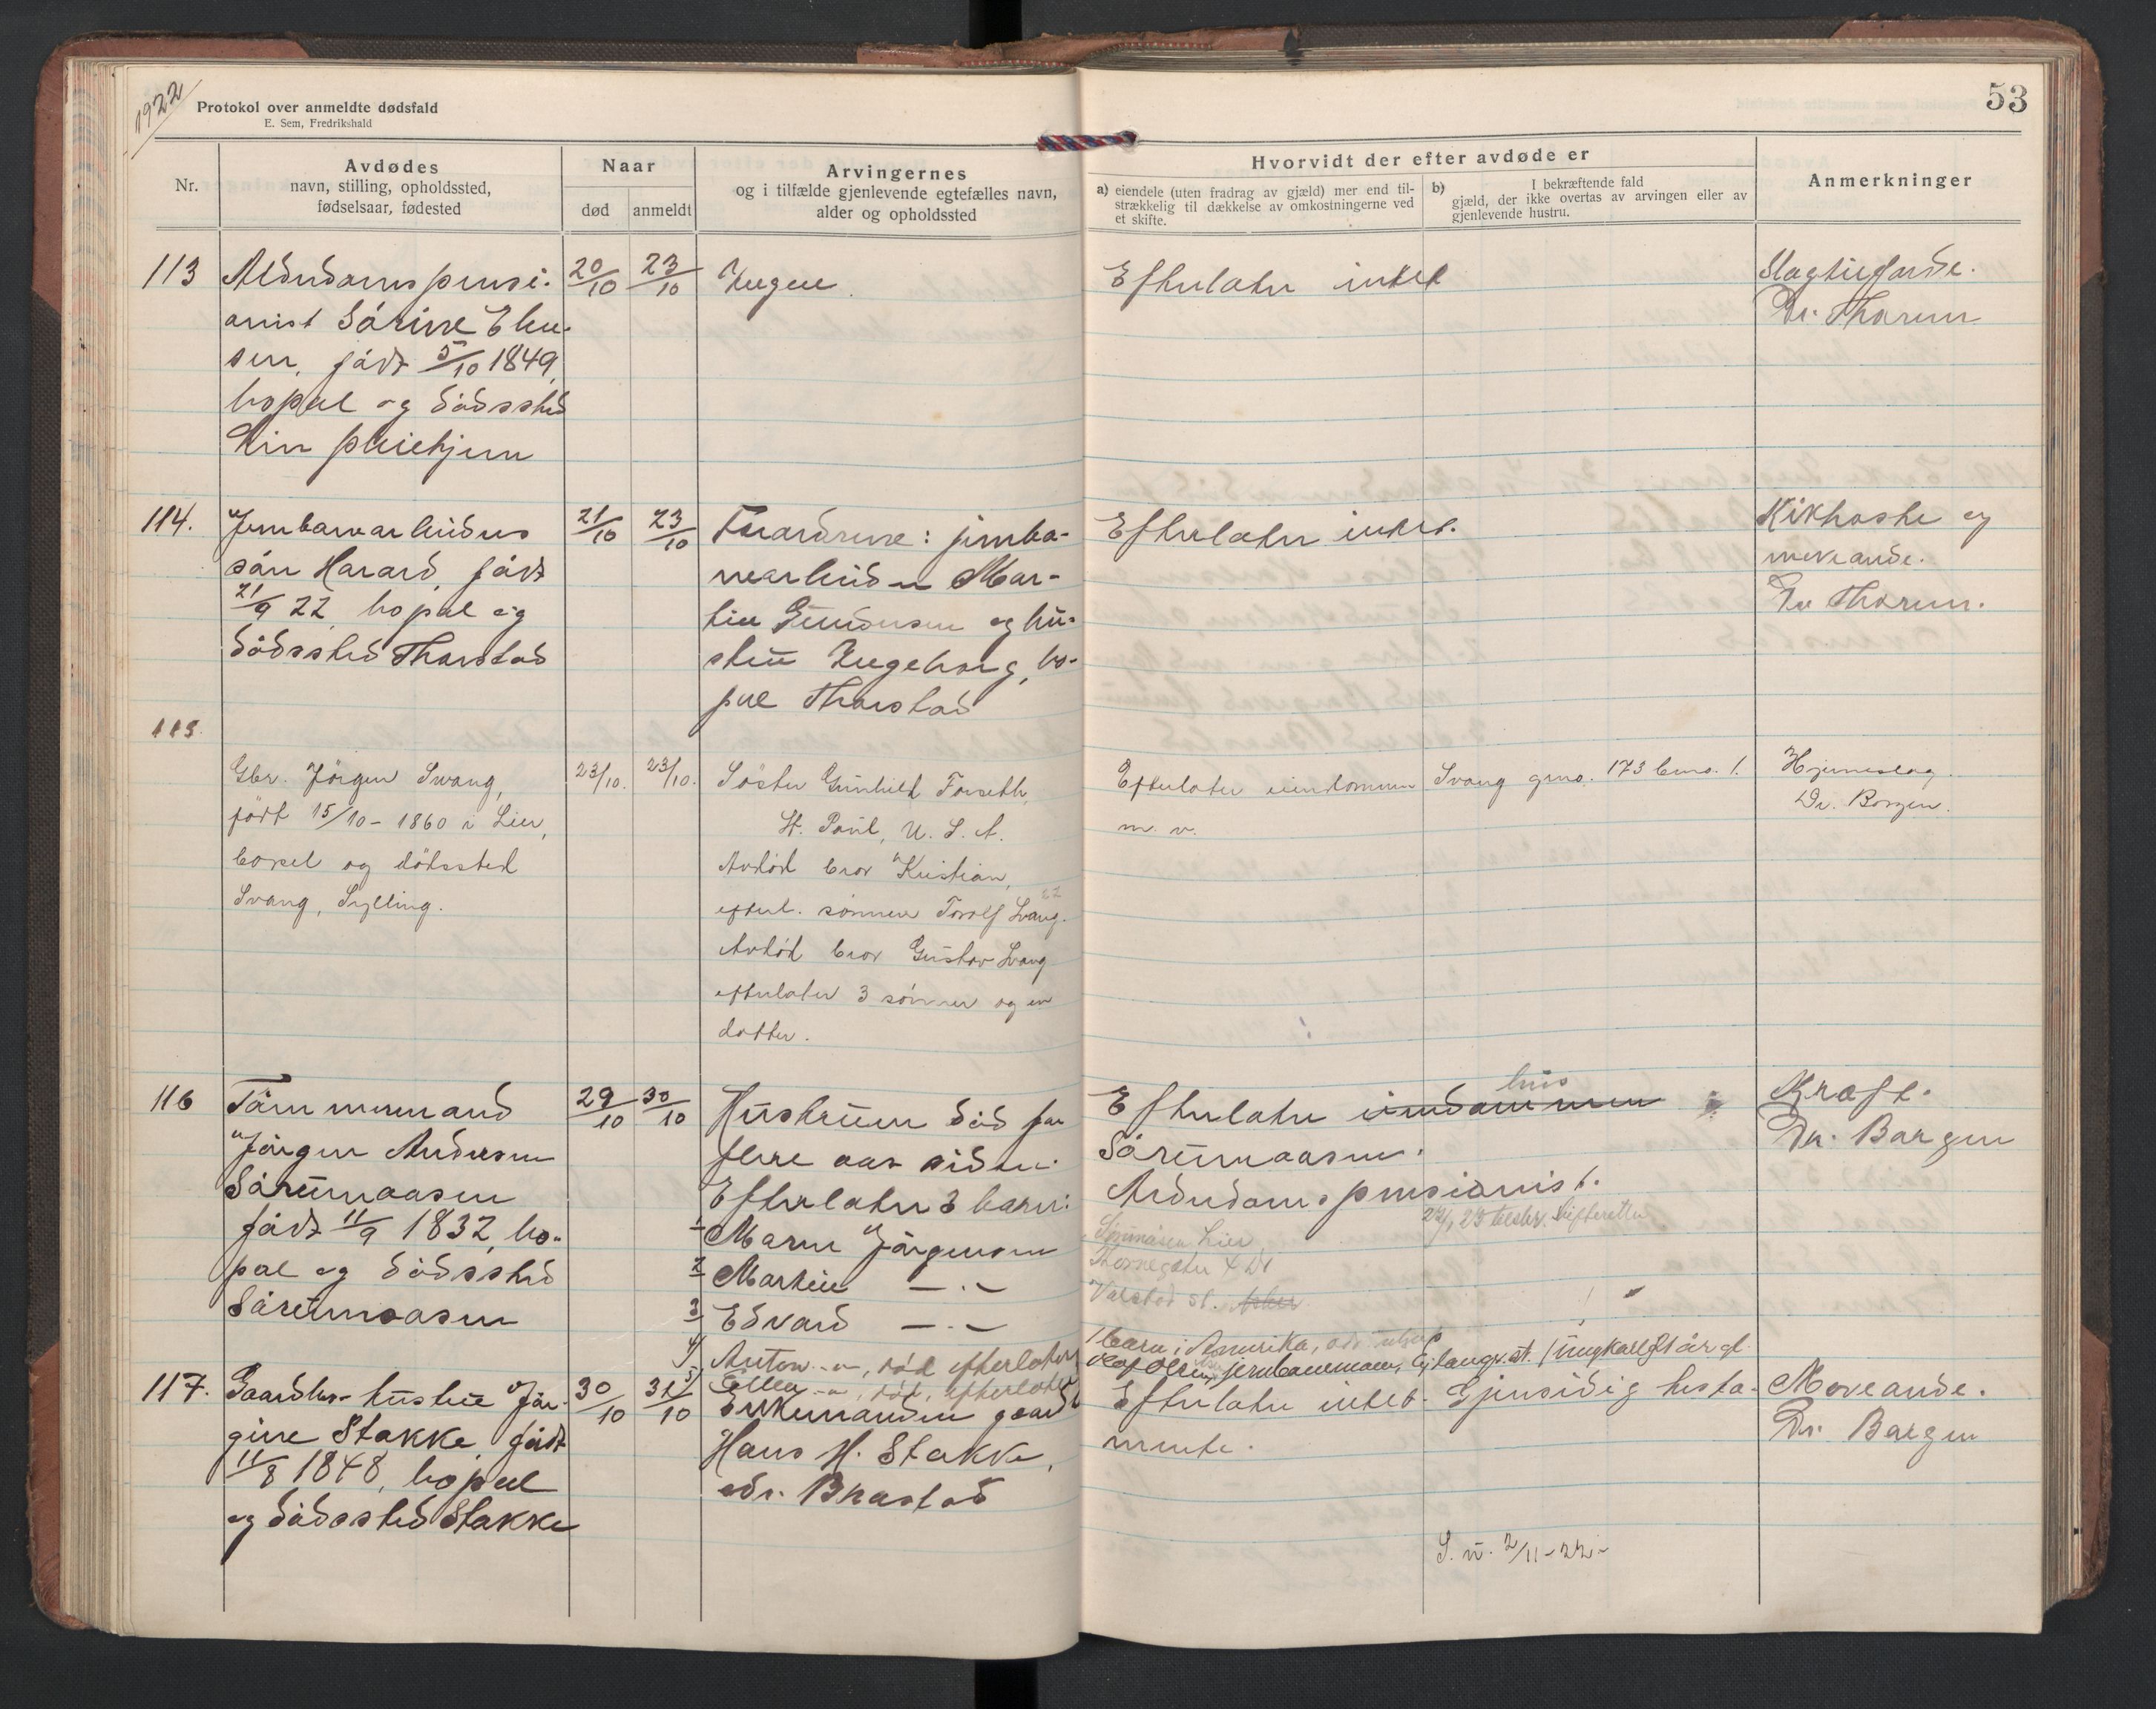 1922
Protokol over anmeldte dødsfald
E. Sem, Fredrikshald
53
Nr.
Avdødes
navn, stilling, opholdssted,
fødselsaar, fødested
Naar
død
anmeldt
Arvingernes
og i tilfælde gjenlevende egtefælles navn,
alder og opholdssted
Hvorvidt der efter avdøde er
a) eiendele (uten fradrag av gjæld) mer end til-
strækkelig til dækkelse av omkostningerne ved
et skifte.
b) I bekræftende fald
gjæld, der ikke overtas av arvingen eller av
gjenlevende hustru.
Anmerkninger
113
Alderdomspensi-
onist Sörine
sen, födt 5/10 1849,
bopæl og dödssted
Lier pleiehjem
20/10
23/10
Ingen
Efterlater intet
Slagtilfælde.
Dr. Thorem
114.
Jernbanearbeiders
sön Harard, födt
21/9 22, bopæl og
dödssted Thorstad
21/10
23/10
Foraldrene: jernba-
nearbeider Mar-
tin Gundersen og hu-
stru Ingeborg, bo-
pæl Thorstad
Efterlater intet.
Kikhoste og
Dr Thorem.
115.
Gbr. Jörgen Svang,
född 15/10 - 1860 i Lier,
bopel og dödssted
Svang, Sylling.
23/10.
23/10.
Söster Gunhild Forseth,
St. Paul, U. S. A.
Avdöd bror Kristian,
efterl. sönnen Torolf Svang.
Avdöd bror Gustav Svang
efterlater 3 sönner og en
datter.
Efterlater eiendommen Svang gno. 173 bno. 1.
m. v.
Hjerneslag.
Dr. Borgen.
116
Tömmermand
Jörgen Andersen
Sörumaasen
födt 11/9 1832, bo-
pæl og dödssted
Sörumaasen
29/10
30/10
Hustruen död for
flere aar siden.
Efterlater 3 barn:
1 Maren Jörgensen
2 Martin — . —
3 Edvard — . —
4) Anton - " -, död efterlater
5) - " -, död, efterlater
hus
Efterlater eiendommen
Sörumaasen.
Alderdomspensionist.
Sörumåsen Lier
Valstad st. Asker
1 barn i Amerika,
Kraft.
Dr. Borgen
117.
Gaardbr. hustru Jör-
gine Stakke, födt
11/8 1848, bopæl
og dödssted Stakke
30/10
31/10
Enkemanden gaardb
Hans H. Stakke,
adr. Brastad
Efterlater intet. Gjensidig testa-
mente.
S. u. 2/11-22-
Dr. Borgen